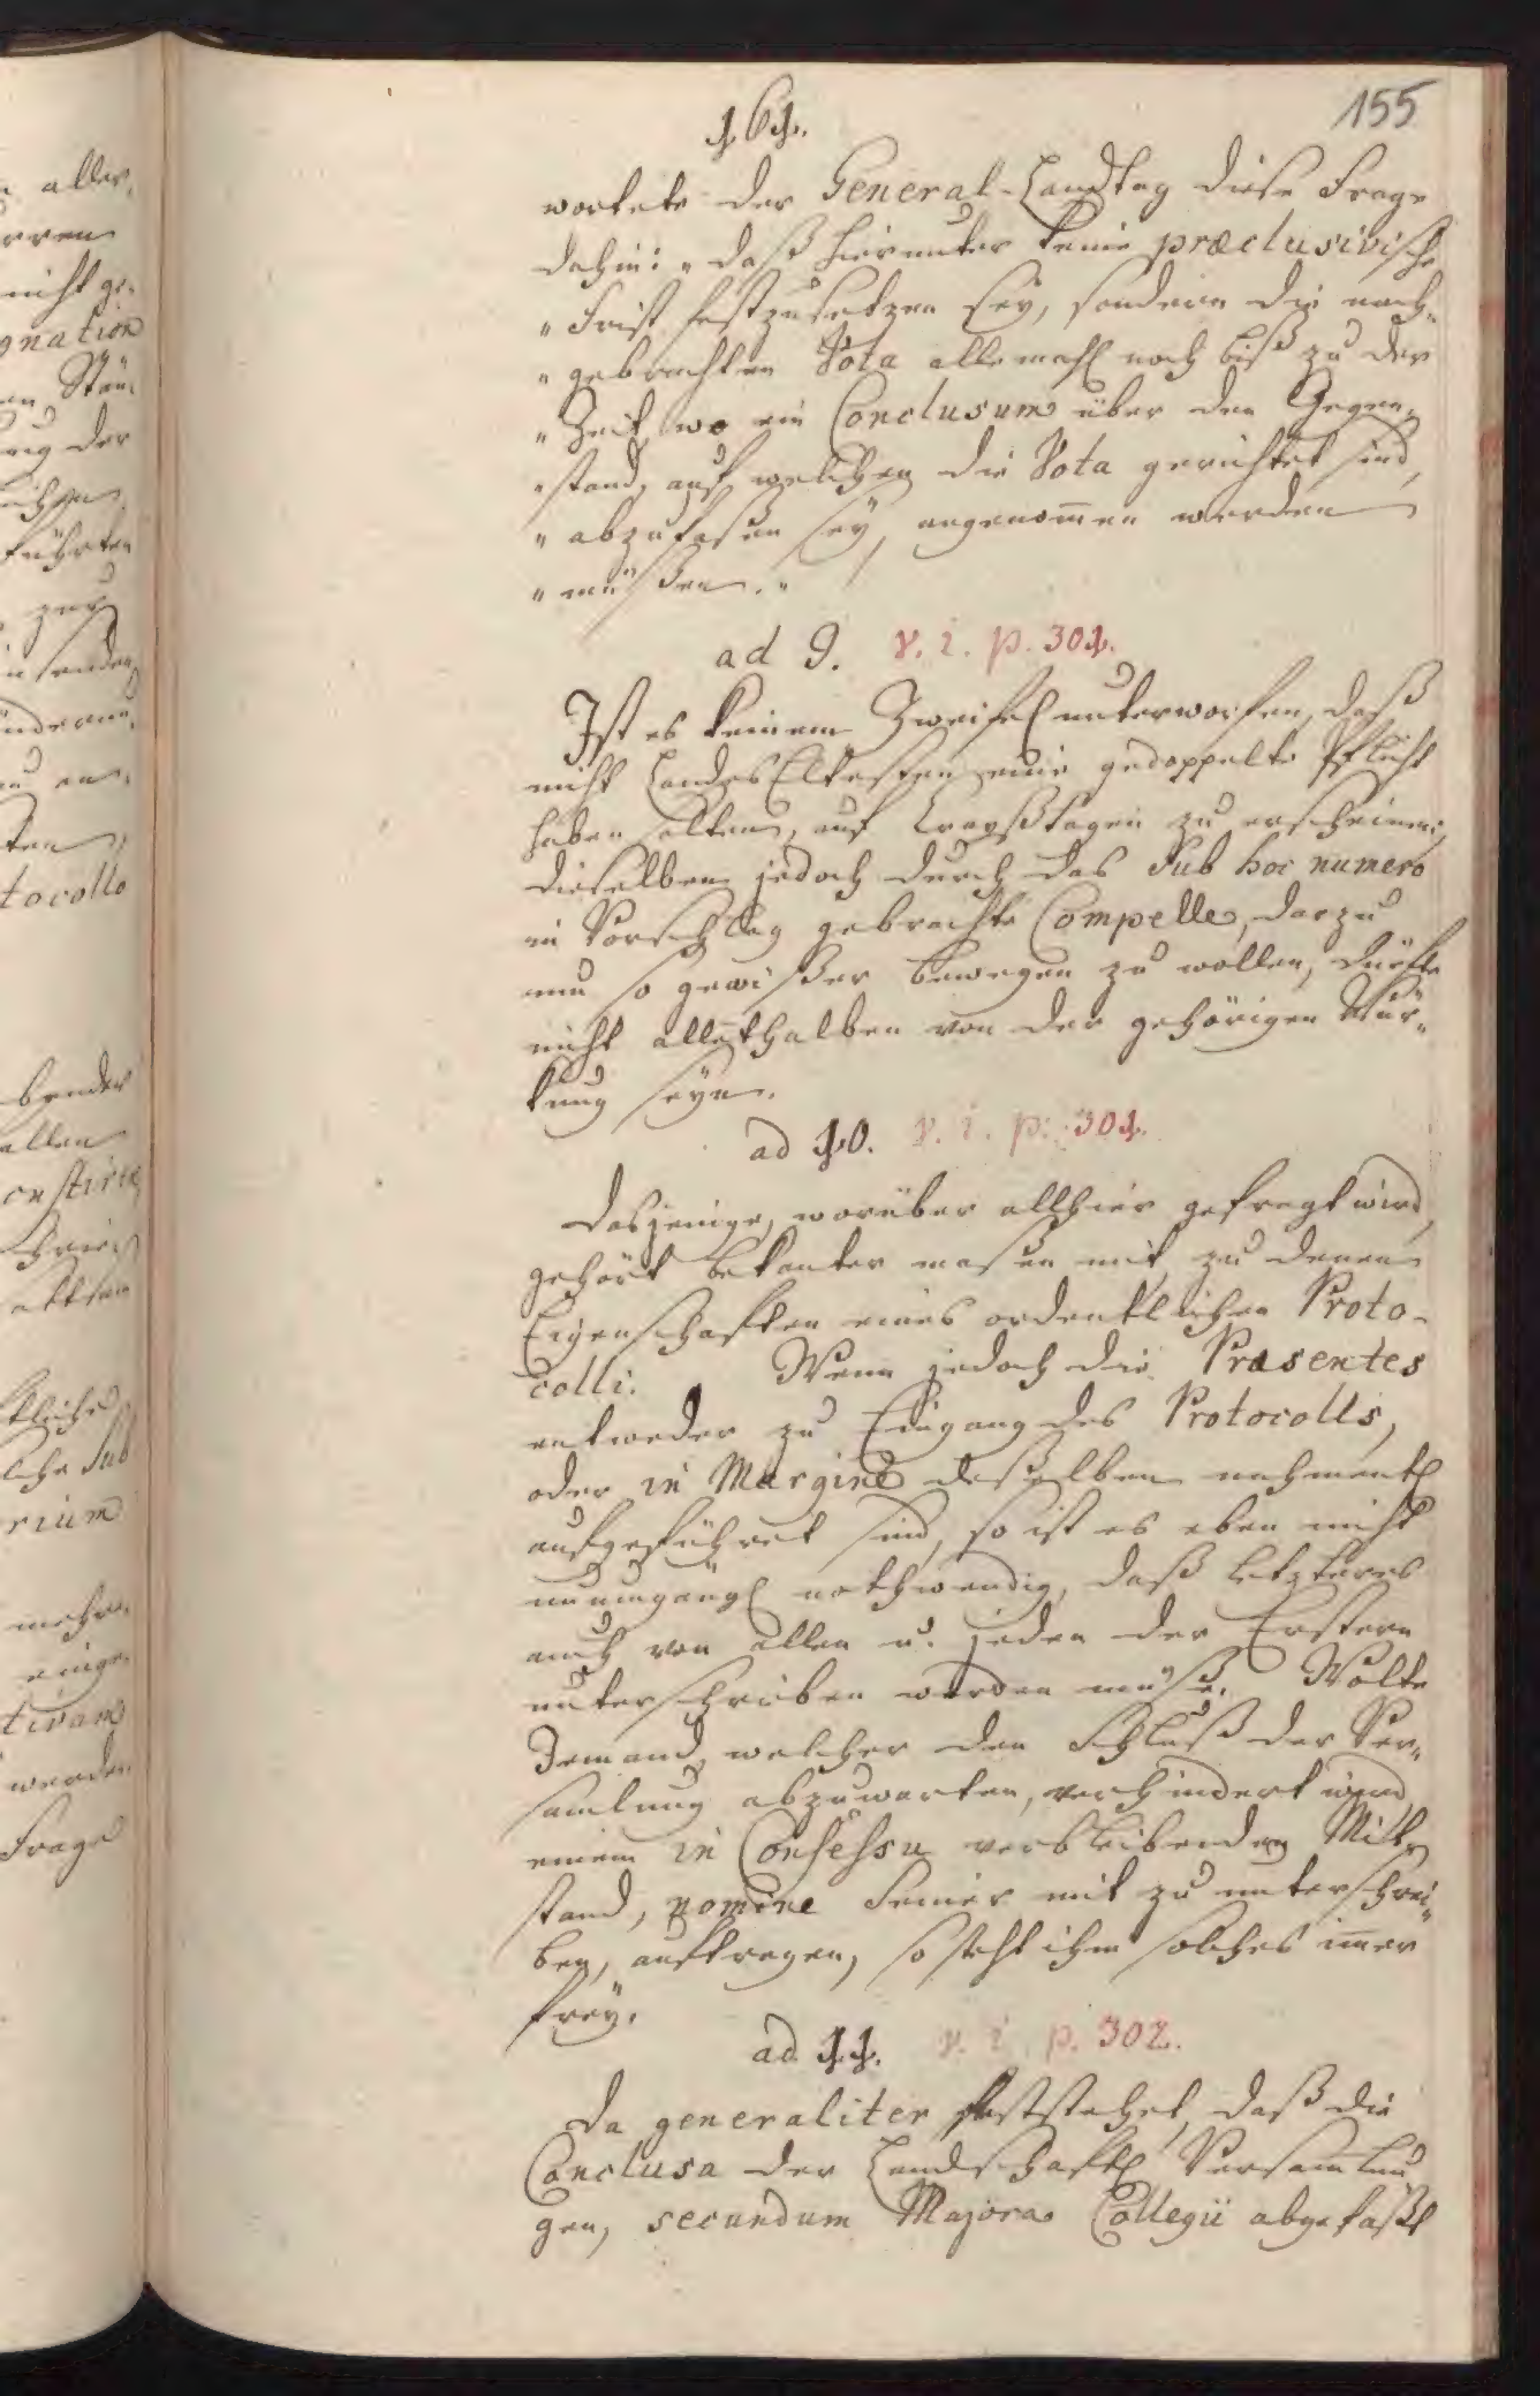 155
161.
wortete der General-Landtag diese Frage
dahin: „daß hierunter keine præclusivische
„Frist festzusetzen sey, sondern die nach„
„gebrachten Vota allemahl noch biß zu der
„Zeit, wo ein Conclusum über den Gegen„
„stand, auf welchen die Vota gerichtet sind,
„abzufaßen sey, angenom̄en werden
„müßen.„
ad 9. v. i. p. 301.
Ist es keinem Zweifel unterworfen, daß
nicht LandesEltesten eine gedoppelte Pflicht
haben solten, auf Crayßtagen zu erscheinen;
dieselben jedoch durch das sub hoc numero
in Vorschlag gebrachte Compelle, darzu
um so gewißer bewegen zu wollen, dürfte
nicht allenthalben von der gehörigen Wür„
kung seyn.
ad 10. v. i. p. 301.
Dasjenige, worüber allhier gefragt wird,
gehört bekanter maßen mit zu denen
Eigenschaften eines ordentlichen Proto-
colli. Wenn jedoch die Præsentes
entweder zu Eingang des Protocolls,
oder in Margine deßelben nahmentl
aufgeführet sind, so ist es eben nicht
unumgängl nothwendig, daß letzteres
auch von allen u. jeden der Erstern
unterschrieben werden müße. Wolte
Jemand, welcher den Schluß der Ver„
samlung abzuwarten, verhindert wird,
einem in Consessu verbleibenden Mit
stand, nomine seiner mit zu unterschrei„
ben, auftragen, so steht ihm solches im̄er
frey.
ad 11. v. i. p. 302.
Da generaliter feststehet, daß die
Conclusa der Landschaftl Versam̄lun
gen, secundum Majora Collegii abgefaßt